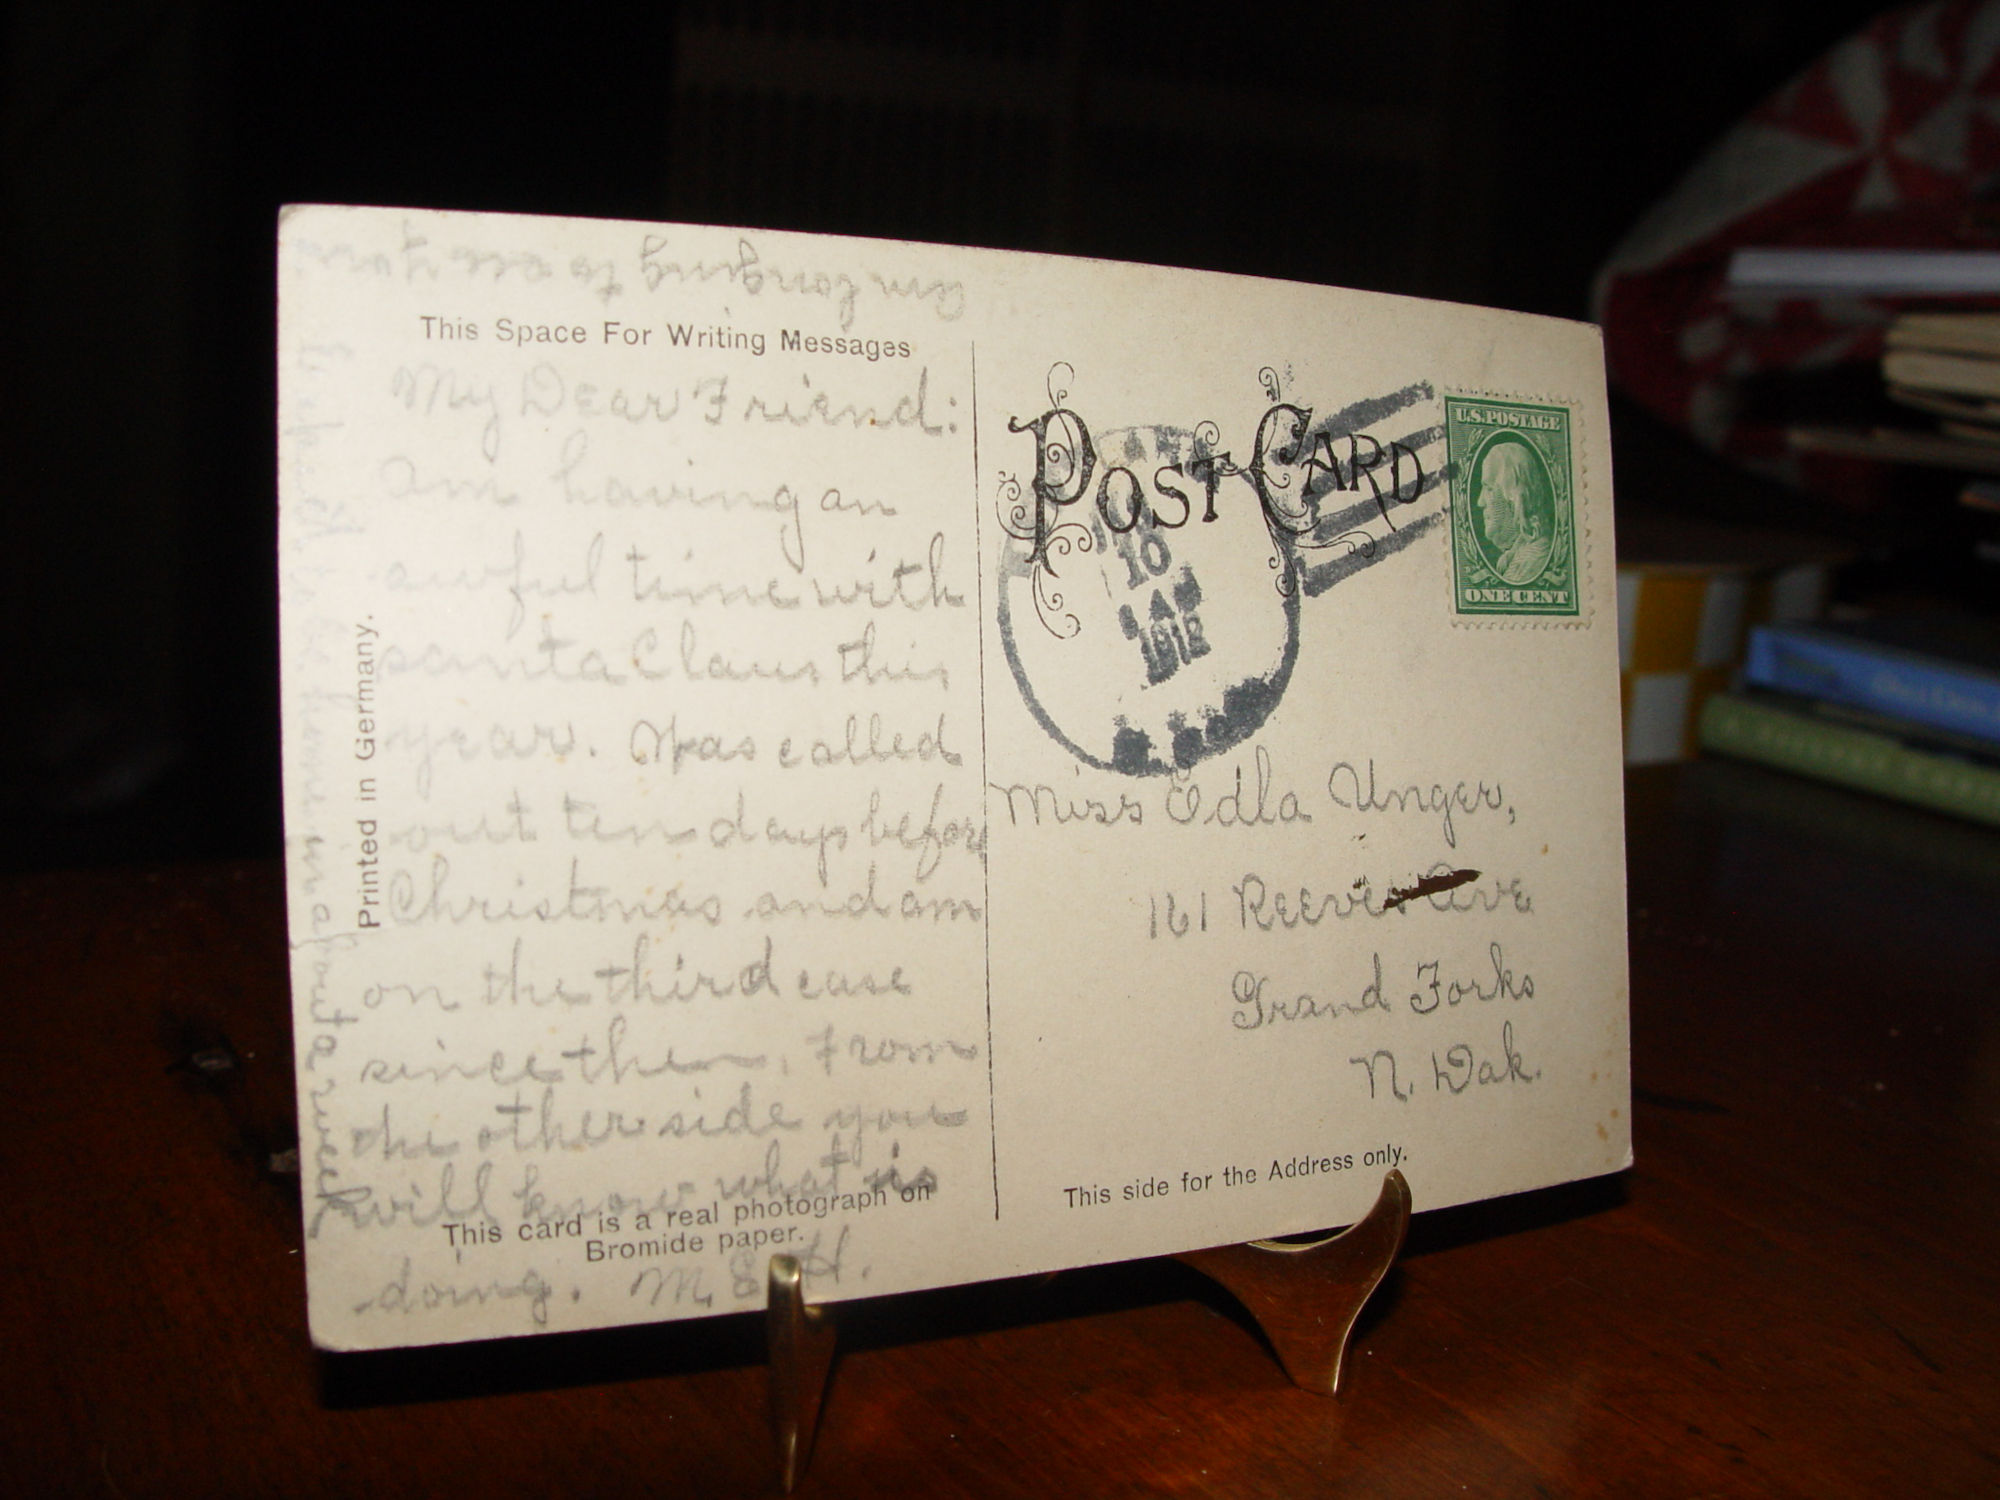 am longing to see you
This Space For Writing Messages
My Dear Friend:
Am having an
awful time with
santa Claus this
year. Was called
out ten days before
Christmas and am
on the third case
since then, From
the other side you
will know what is
This card is a real photograph on
Bromide paper.
doing. M. E. H.
Printed in Germany.
I expect to be home in about a week
POST CARD
10
1 AM
1912
U.S. POSTAGE
ONE CENT
Miss Edla Unger,
161 Reeves Ave
Grand Forks
N. Dak.
This side for the Address only.